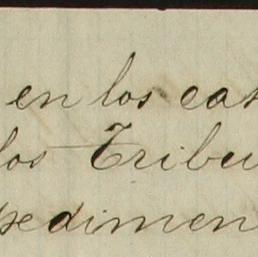 en los cas
los Tribu
pedimen